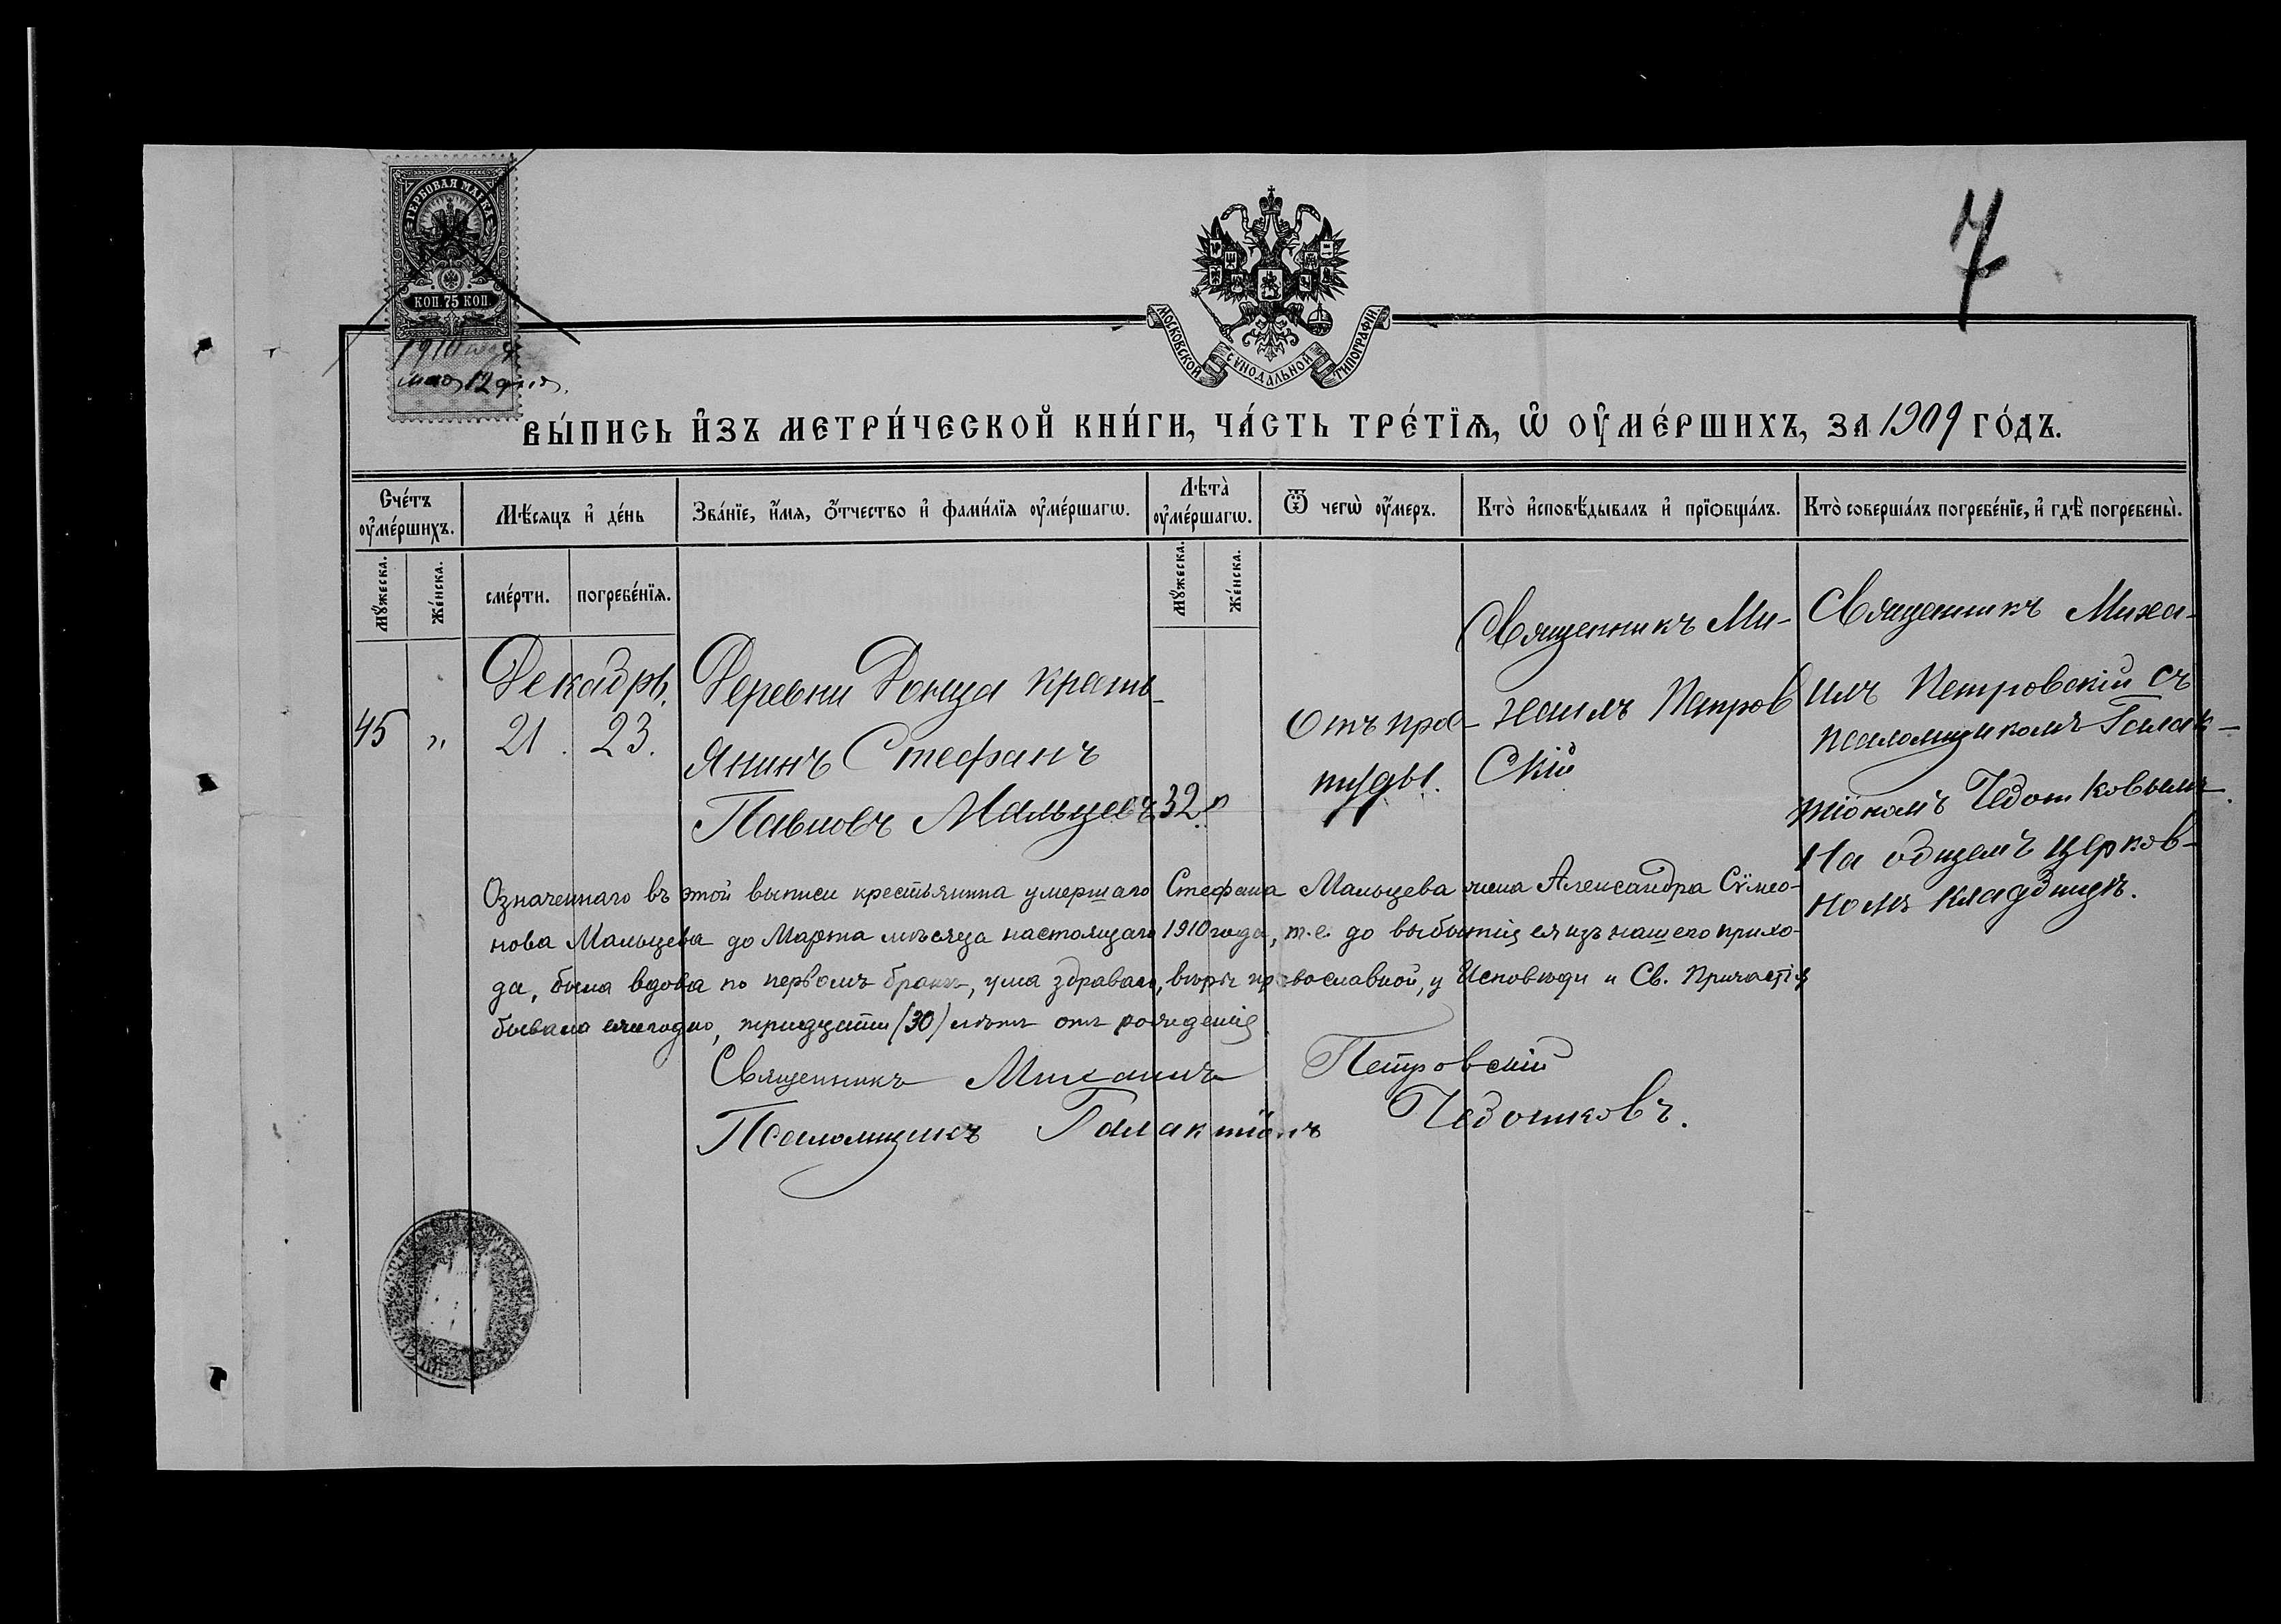 7
ГЕРБОВАЯ МАРКА
КОП. 75 КОП.
1910 года
мая 12 дня.
МОСКОВСКОЙ СѴНОДАЛЬНОЙ ТИПОГРАФІИ
ВЫ́ПИСЬ И҆ЗЪ МЕТРИ́ЧЕСКОЙ КНИ́ГИ, ЧА́СТЬ ТРЕ́ТІѦ, Ѡ҆ ОУ҆МЕ́РШИХЪ, ЗА 1909 ГО́ДЪ.
Сче́тъ оу҆ме́ршихъ.
Мѣ́сяцъ и҆ де́нь
Зва́нїе, и҆́мя, ѻ҆́тчество и҆ фами́лїя оу҆ме́ршагѡ.
Лѣта̀ оу҆ме́ршагѡ.
Ѿ чегѡ̀ оу҆́меръ.
Кто̀ и҆сповѣ́дывалъ и҆ прїѻбща́лъ.
Кто̀ соверша́лъ погребе́нїе, и҆ гдѣ̀ погребены̀.
Мꙋ́жеска.
Же́нска.
сме́рти.
погребе́нїя.
Мꙋ́жеска.
Же́нска.
45
"
Декабрь.
21. 23.
Деревни Донца кресть-
янинъ Стефанъ
Павловъ Мальцевъ
32
"
Отъ прос-
туды.
Священникъ Ми-
хаилъ Петров
скій
Священникъ Миха-
илъ Петровскій съ
псаломщикомъ Галак-
тіономъ Чедошковымъ.
На общемъ церков-
номъ кладбищѣ.
Означеннаго въ этой выписи крестьянина умершаго Стефана Мальцева жена Александра Сѵмео-
нова Мальцева до Марта мѣсяца настоящаго 1910 года, т.е. до выбытія ея изъ нашего прихо-
да, была вдова по первомъ бракѣ, ума здраваго, вѣры православной, у Исповѣди и Св. Причастія
бывала ежегодно, тридцати (30) лѣтъ отъ рожденія.
Священникъ Михаилъ Петровскій
Псаломщикъ Галактіонъ Чедошковъ.